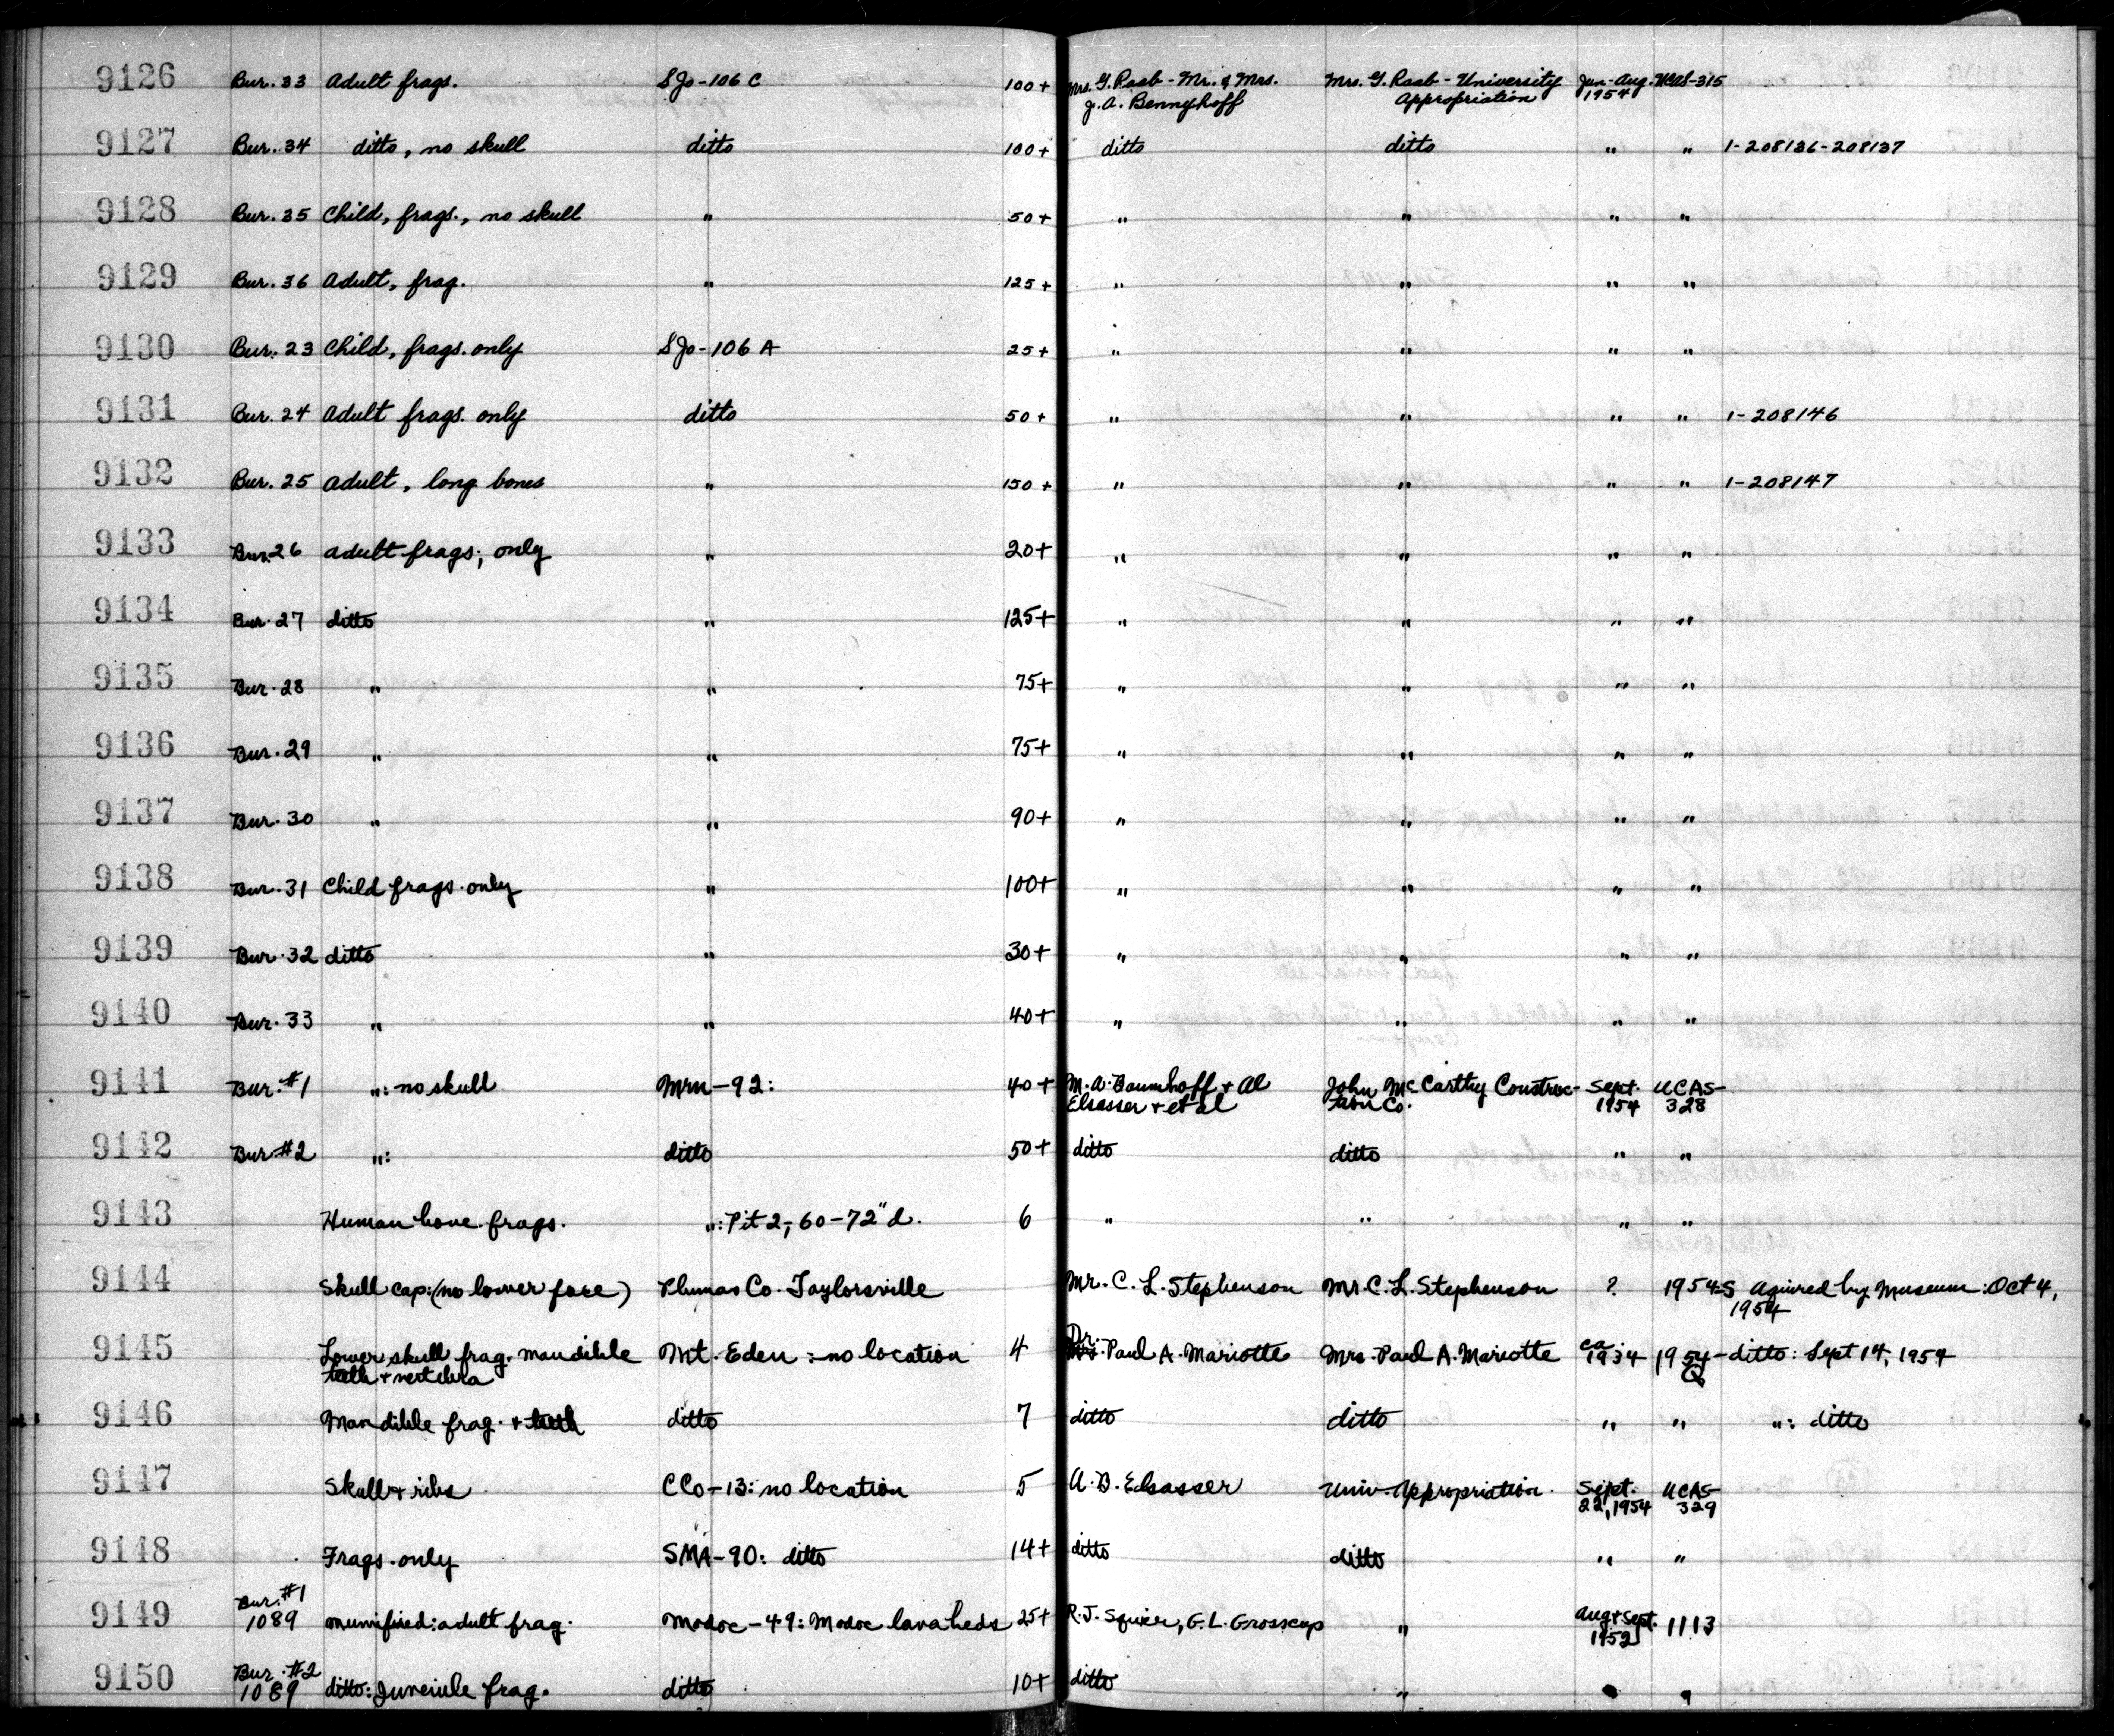 9126 Bur. 33 Adult frags. SJo-106 C 100+ Mrs. G. Raab - Mr. & Mrs. J.A. Bennyhoff Mrs. G. Raab - University Appropriation Jun-Aug. 1954 UCAS-315
9127 Bur. 34 ditto, no skull ditto 100+ ditto ditto " " 1-208136-208137
9128 Bur. 35 Child, frags., no skull " 50+ " " " "
9129 Bur. 36 Adult, frag. " 125+ " " " "
9130 Bur. 23 Child, frags. only SJo-106 A 25+ " " " "
9131 Bur. 24 Adult frags. only ditto 50+ " " " " 1-208146
9132 Bur. 25 Adult, long bones " 150+ " " " " 1-208147
9133 Bur. 26 adult frags; only " 20+ " " " "
9134 Bur. 27 ditto " 125+ " " " "
9135 Bur. 28 " " 75+ " " " "
9136 Bur. 29 " " 75+ " " " "
9137 Bur. 30 " " 90+ " " " "
9138 Bur. 31 Child frags. only " 100+ " " " "
9139 Bur. 32 ditto " 30+ " " " "
9140 Bur. 33 " " 40+ " " " "
9141 Bur. #1 ": no skull Mrn-92: 40+ M.A. Baumhoff + Al Elsasser + et al John McCarthy Construction Co. Sept. 1954 UCAS-328
9142 Bur. #2 ": ditto 50+ ditto ditto " "
9143 Human bone frags. ": Pit 2; 60-72" d. 6 " " " "
9144 Skull cap: (no lower face) Plumas Co. Taylorsville Mr. C. L. Stephenson Mr. C. L. Stephenson ? 1954-S Aquired by Museum: Oct 4, 1954
9145 Lower skull frag. mandible teeth + vertebra Mt. Eden: no location 4 Dr. Paul A. Mariotte Mrs. Paul A. Mariotte ca 1934 1954-Q ditto: Sept 14, 1954
9146 Mandible frag. + teeth ditto 7 ditto ditto " " ": ditto
9147 Skull + ribs CCo-13: no location 5 A.B. Elsasser Univ. Appropriation. Sept. 22, 1954 UCAS-329
9148 Frags. only SMA-90: ditto 14+ ditto ditto " "
9149 Bur. #1 1089 mumified: adult frag. Modoc-49: Modoc lava beds 25+ R.J. Squier, G.L. Grosscup " Aug + Sept. 1952 1113
9150 Bur. #2 1089 ditto: Juvenile frag. ditto 10+ ditto " " "